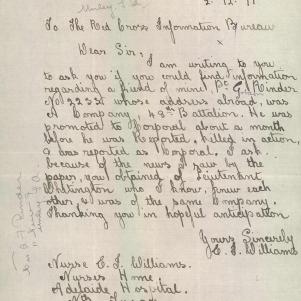 Unley S.A.
2. 12. 17
To The Red Cross Information Bureau
Dear Sir,
I am writing to you
to ask you if you could find information
regarding a friend of mine Pte G. Rinder
No 2233 whose address abroad, was
A Company, 48th Battalion. He was
promoted to Corporal about a month
before he was Reported, killed in action,
& was reported as Corporal. I ask
because of the news I saw by the
paper, you obtained of Lieutenant
Whittington who I know, knew each
other & was of the same Company.
Thanking you in hopeful anticipation
Yours Sincerely
C. J. Williams
Nurse C. J. Williams.
Nurses Home.
Adelaide Hospital.
Nth Terrace